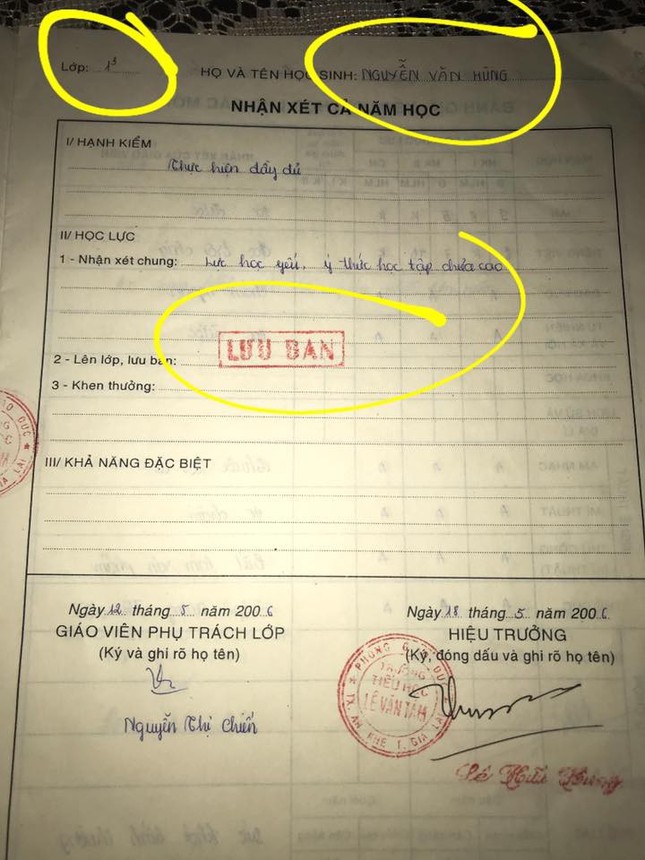 Lớp: 1³ HỌ VÀ TÊN HỌC SINH: NGUYỄN VĂN HÙNG
NHẬN XÉT CẢ NĂM HỌC
I/ HẠNH KIỂM
Thực hiện đầy đủ
II/ HỌC LỰC
1 - Nhận xét chung: Lực học yếu, ý thức học tập chưa cao
2 - Lên lớp, lưu ban: LƯU BAN
3 - Khen thưởng:
III/ KHẢ NĂNG ĐẶC BIỆT
Ngày 12 tháng 5 năm 2006
GIÁO VIÊN PHỤ TRÁCH LỚP
(Ký và ghi rõ họ tên)
Nguyễn Thị Chiến
Ngày 18 tháng 5 năm 2006
HIỆU TRƯỞNG
(Ký, đóng dấu và ghi rõ họ tên)
TRƯỜNG
TIỂU HỌC
LÊ VĂN TÁM
TX. AN KHÊ T. GIA LAI
Lê Hữu Hương